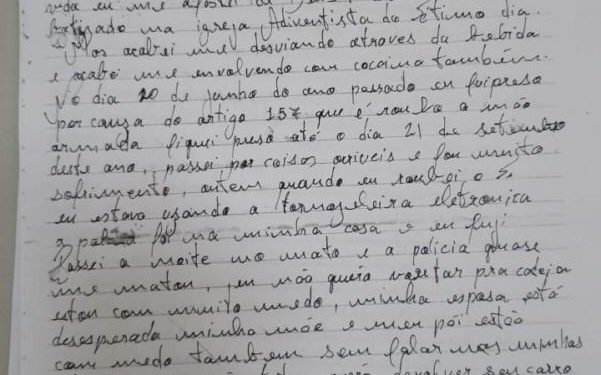 vida eu me afastei da
batizado na igreja Adventista do Sétimo dia.
Mas acabei me desviando atraves da bebida
e acabei me envolvendo com cocaina também.
No dia 20 de junho do ano passado eu fui preso
por causa do artigo 157 que é roubo a mão
armada fiquei preso até o dia 21 de setembro
deste ano, passei por coisas orriveis e foi muito
sofrimento, ontem quando eu roubei o S.
eu estava usando a tornozeleira eletronica
a policia foi na minha casa e eu fugi
Passei a noite no mato e a policia quase
me matou, eu não quero voltar pra cadeia
estou com muito medo, minha esposa está
desesperada minha mãe e meu pai estão
com medo também sem falar nas minhas
devolver seu carro